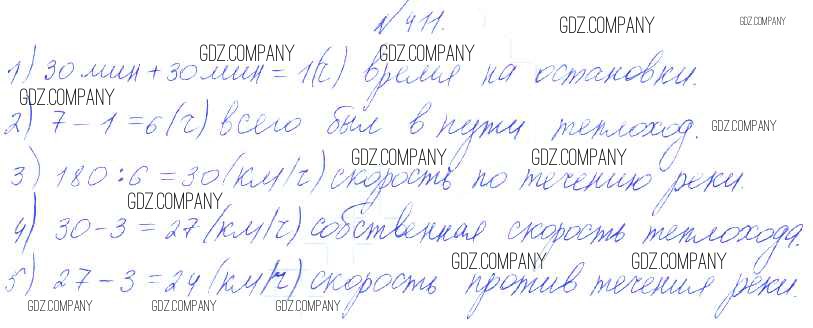 № 411.
GDZ.COMPANY GDZ.COMPANY
GDZ.COMPANY GDZ.COMPANY
1) 30 мин + 30 мин = 1 (ч) время на остановки.
GDZ.COMPANY
2) 7 - 1 = 6 (ч) всего был в пути теплоход. GDZ.COMPANY
GDZ.COMPANY GDZ.COMPANY
3) 180 : 6 = 30 (км/ч) скорость по течению реки.
GDZ.COMPANY
4) 30 - 3 = 27 (км/ч) собственная скорость теплохода.
GDZ.COMPANY GDZ.COMPANY
5) 27 - 3 = 24 (км/ч) скорость против течения реки.
GDZ.COMPANY GDZ.COMPANY GDZ.COMPANY